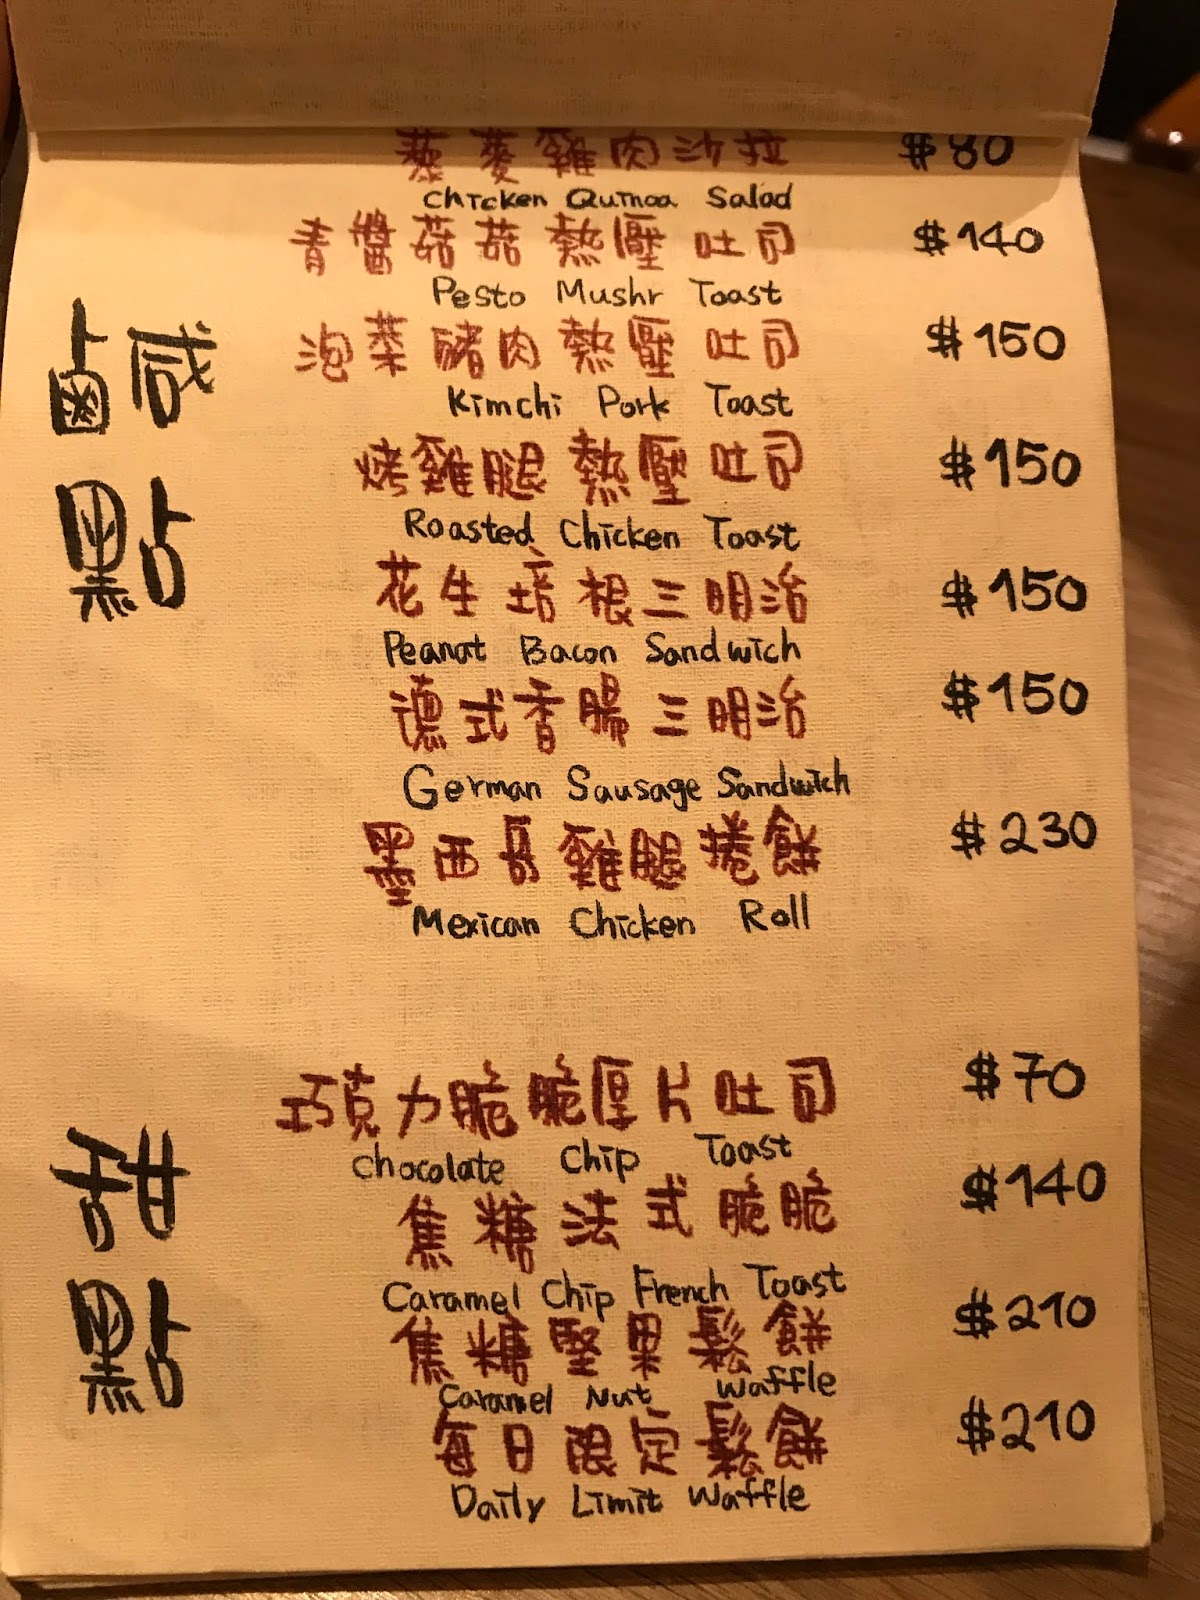 藜麥雞肉沙拉 $80
Chicken Quinoa Salad
青醬菇菇熱壓吐司 $140
Pesto Mushr Toast
鹹點
泡菜豬肉熱壓吐司 $150
Kimchi Pork Toast
烤雞腿熱壓吐司 $150
Roasted Chicken Toast
花生培根三明治 $150
Peanat Bacon Sandwich
德式香腸三明治 $150
German Sausage Sandwich
墨西哥雞腿捲餅 $230
Mexican Chicken Roll
甜點
巧克力脆脆厚片吐司 $70
Chocolate Chip Toast
焦糖法式脆脆 $140
Caramel Chip French Toast
焦糖堅果鬆餅 $210
Caramel Nut Waffle
每日限定鬆餅 $210
Daily Limit Waffle